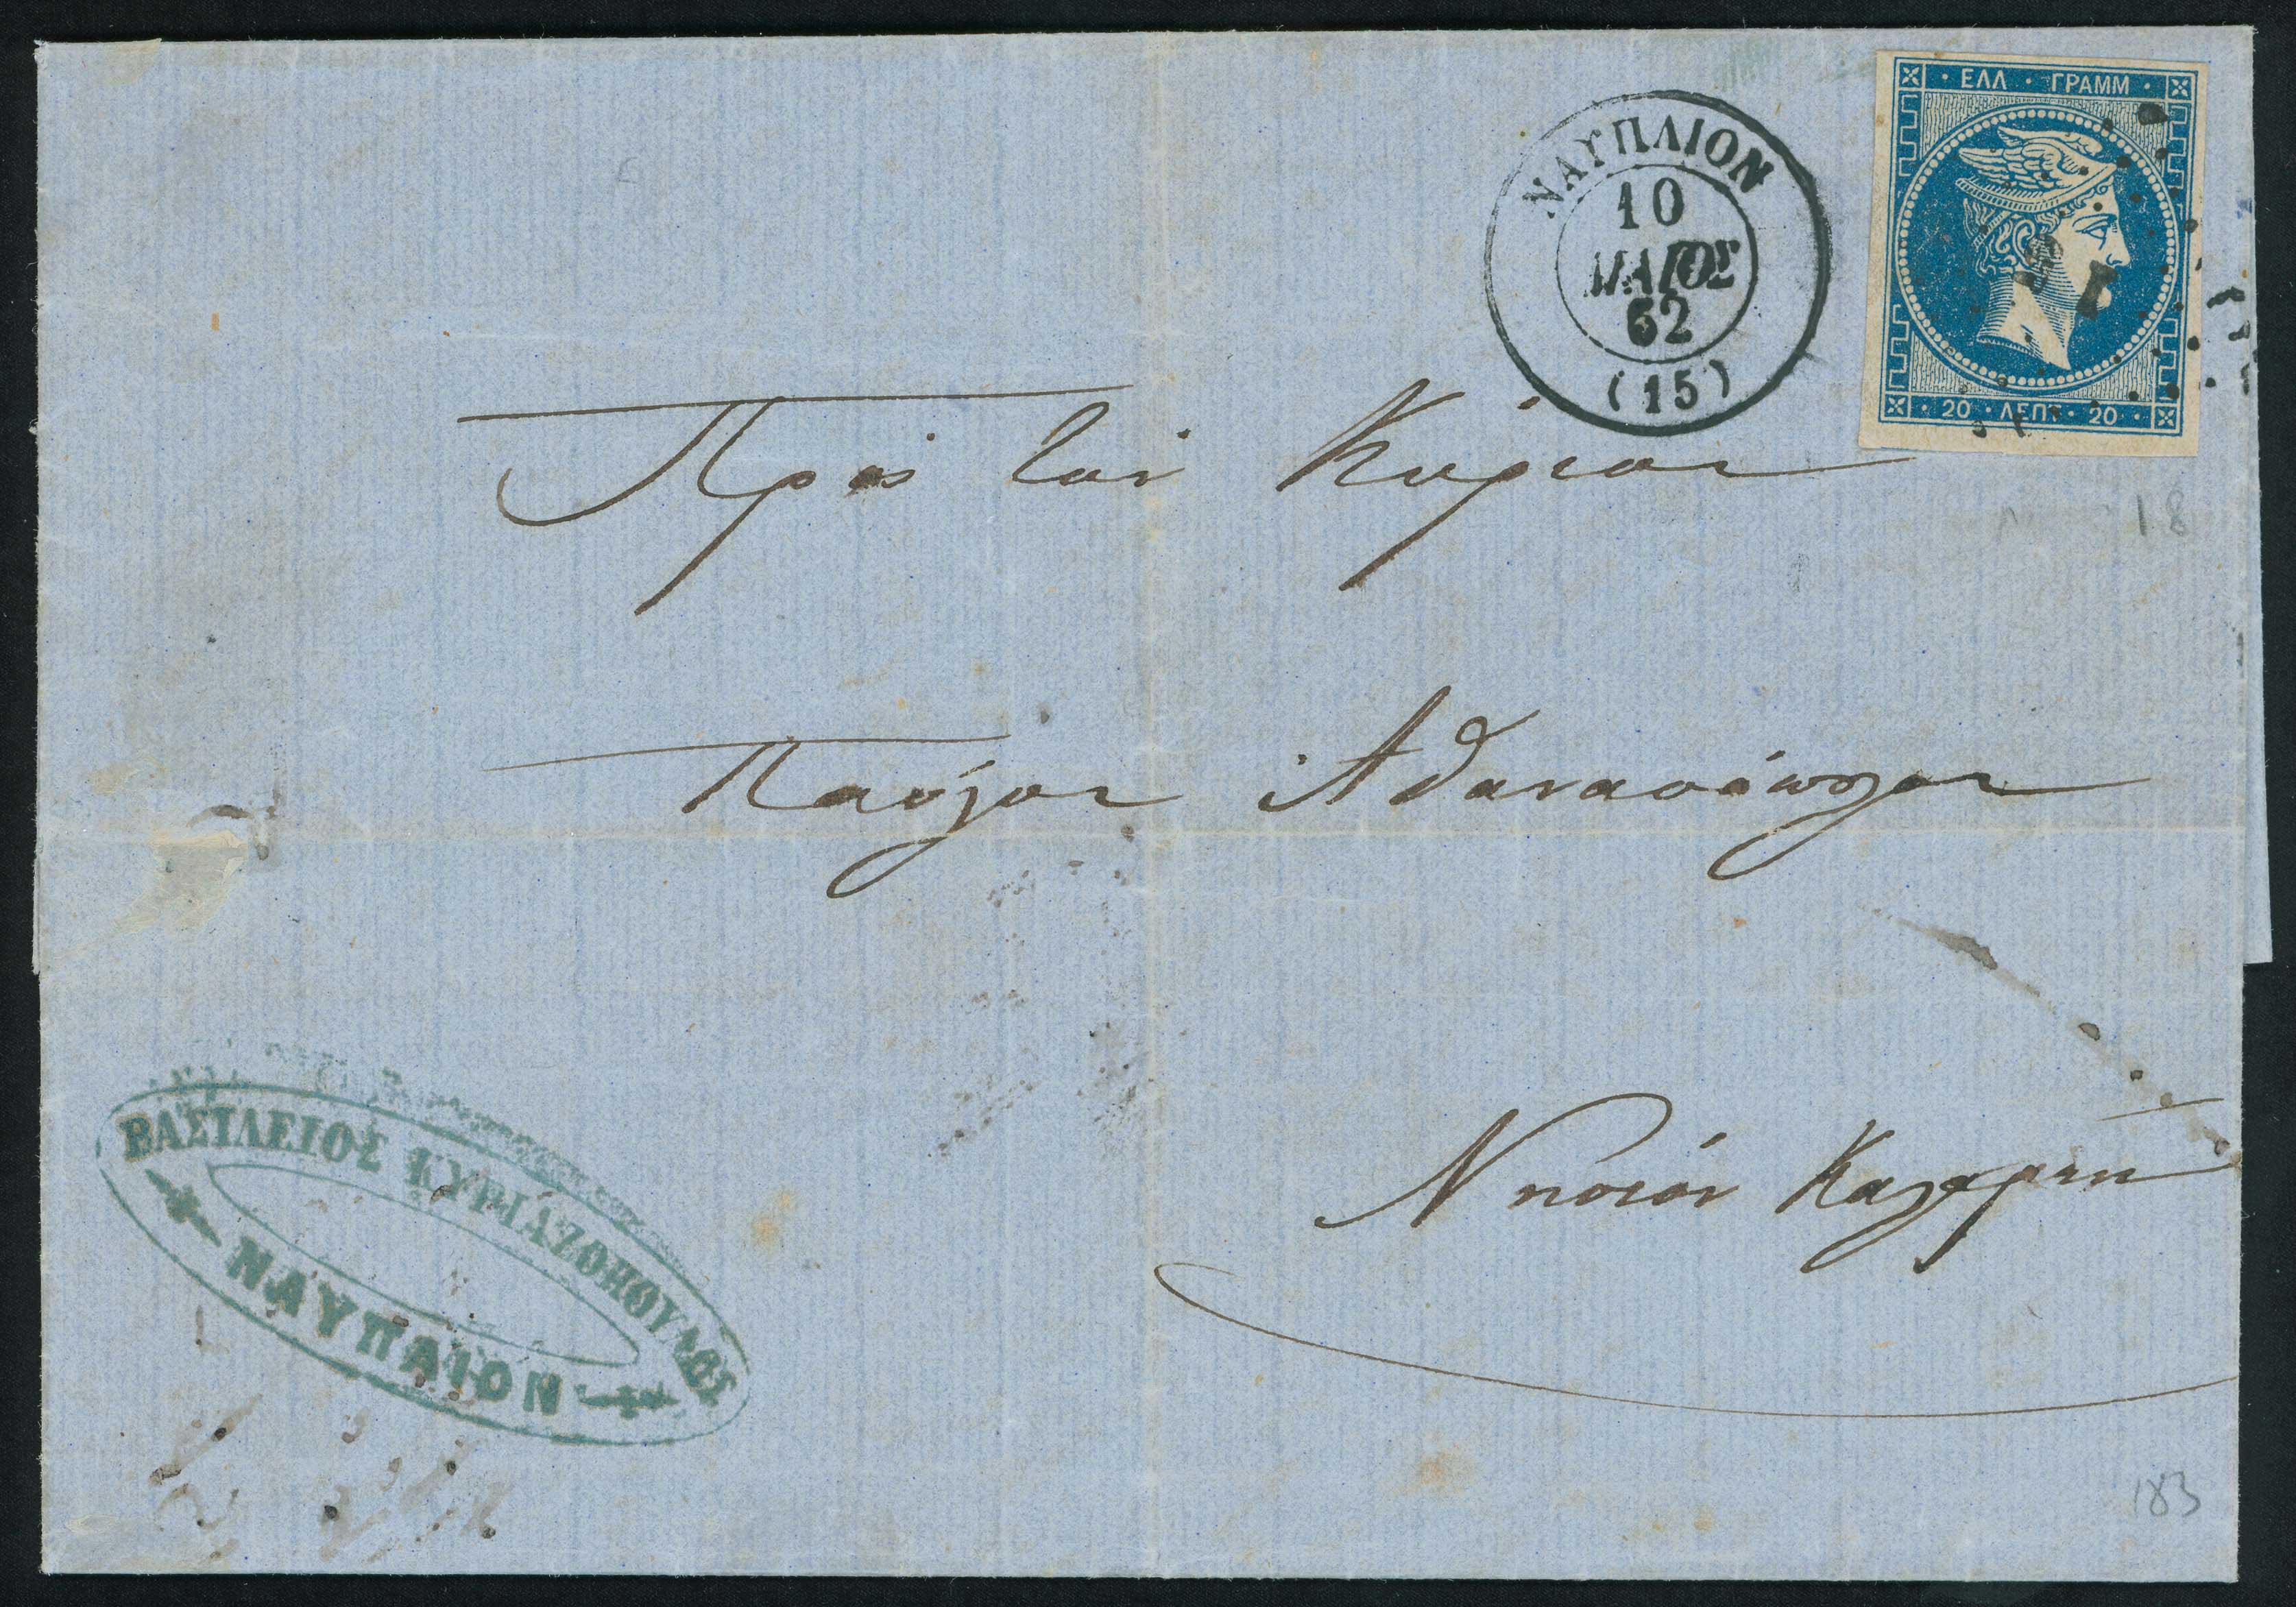 ΕΛΛ · ΓΡΑΜΜ
20 · ΛΕΠΤ · 20
ΝΑΥΠΛΙΟΝ
10
ΜΑΙΟΣ
62
(15)
Πρὸς τὸν Κύριον
18
Παῦλον Ἀθανασόπουλον
Νησίον Καλαμῶν
ΒΑΣΙΛΕΙΟΣ ΚΥΡΙΑΖΟΠΟΥΛΟΣ
ΝΑΥΠΛΙΟΝ
183